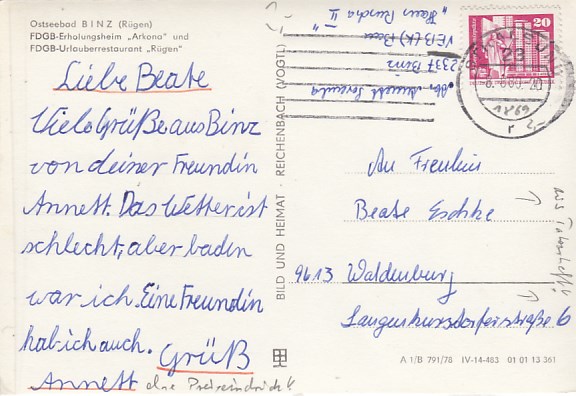 Ostseebad BINZ (Rügen)
FDGB-Erholungsheim „Arkona" und
FDGB-Urlauberrestaurant „Rügen"
Liebe Beate
Viele Grüße aus Binz
von deiner Freundin
Annett. Das Wetter ist
schlecht, aber baden
war ich. Eine Freundin
hab ich auch. Grüß
Annett
BILD UND HEIMAT · REICHENBACH (VOGTL)
2337 Binz
20
An Freulein
Beate Eschke
9613 Waldenburg
Langenhursdorferstraße 6
A 1/B 791/78 IV-14-483 01 01 13 361